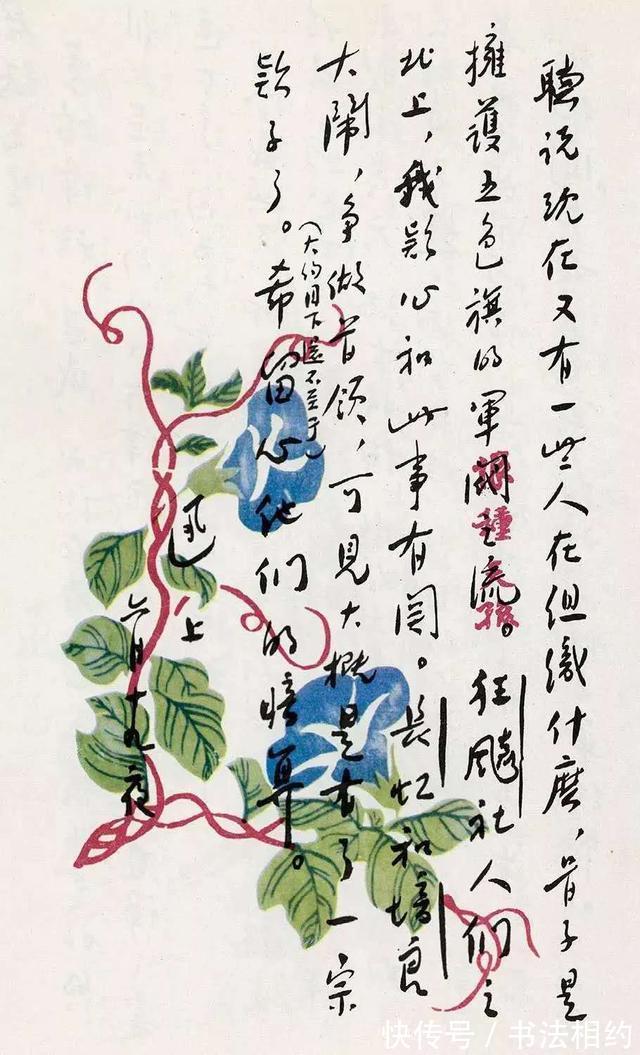 聽說現在又有一些人在组織什麼，首子是
擁護五色旗的軍閥之流。狂飈社人们之
北上，我疑心和此事有関。長虹和培良
大鬧，争做首领，可見大概是有了一宗
款子了。（大约目下還不至于）希留心他们的暗算。
迅上
六月十九夜
快传号 / 书法相约